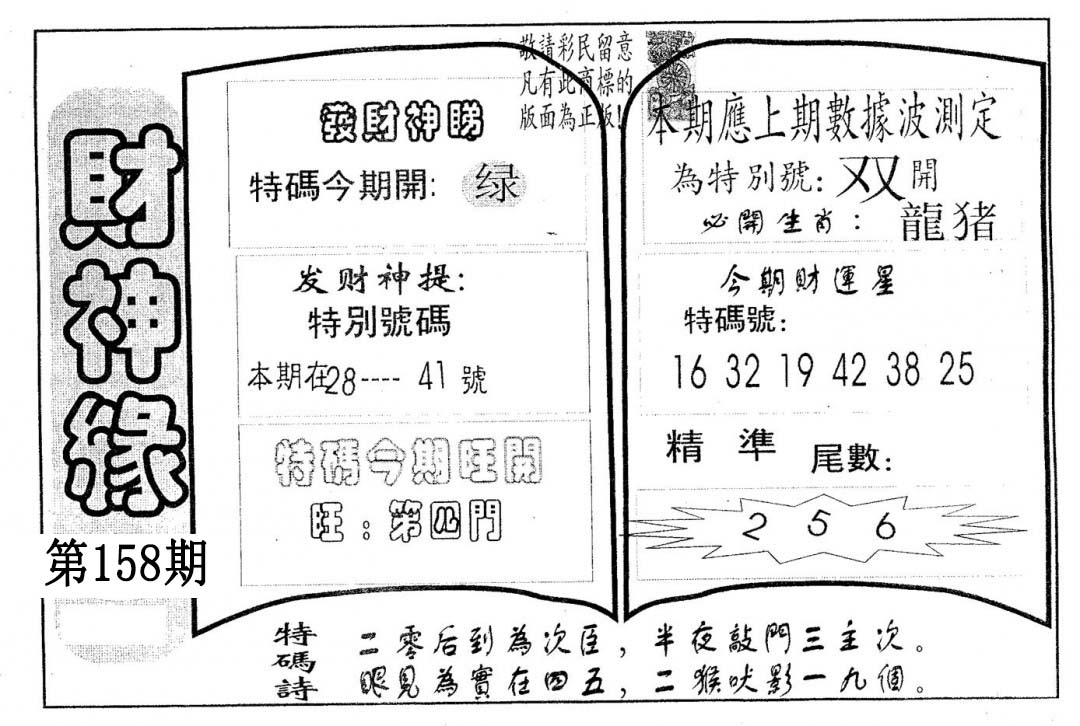 敬請彩民留意
凡有此商標的
版面為正版!
財神緣
第158期
發財神睇
特碼今期開: 绿
发财神提:
特別號碼
本期在28---- 41 號
特碼今期旺開
旺:第四門
本期應上期數據波測定
為特別號: 双 開
必開生肖: 龍猪
今期財運星
特碼號:
16 32 19 42 38 25
精 準 尾數:
2 5 6
特碼詩
二零后到為次臣,半夜敲門三主次。
眼見為實在四五,二猴吠影一九個。